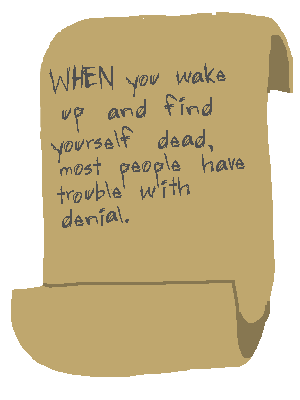 WHEN you wake
up and find
yourself dead,
most people have
trouble with
denial.